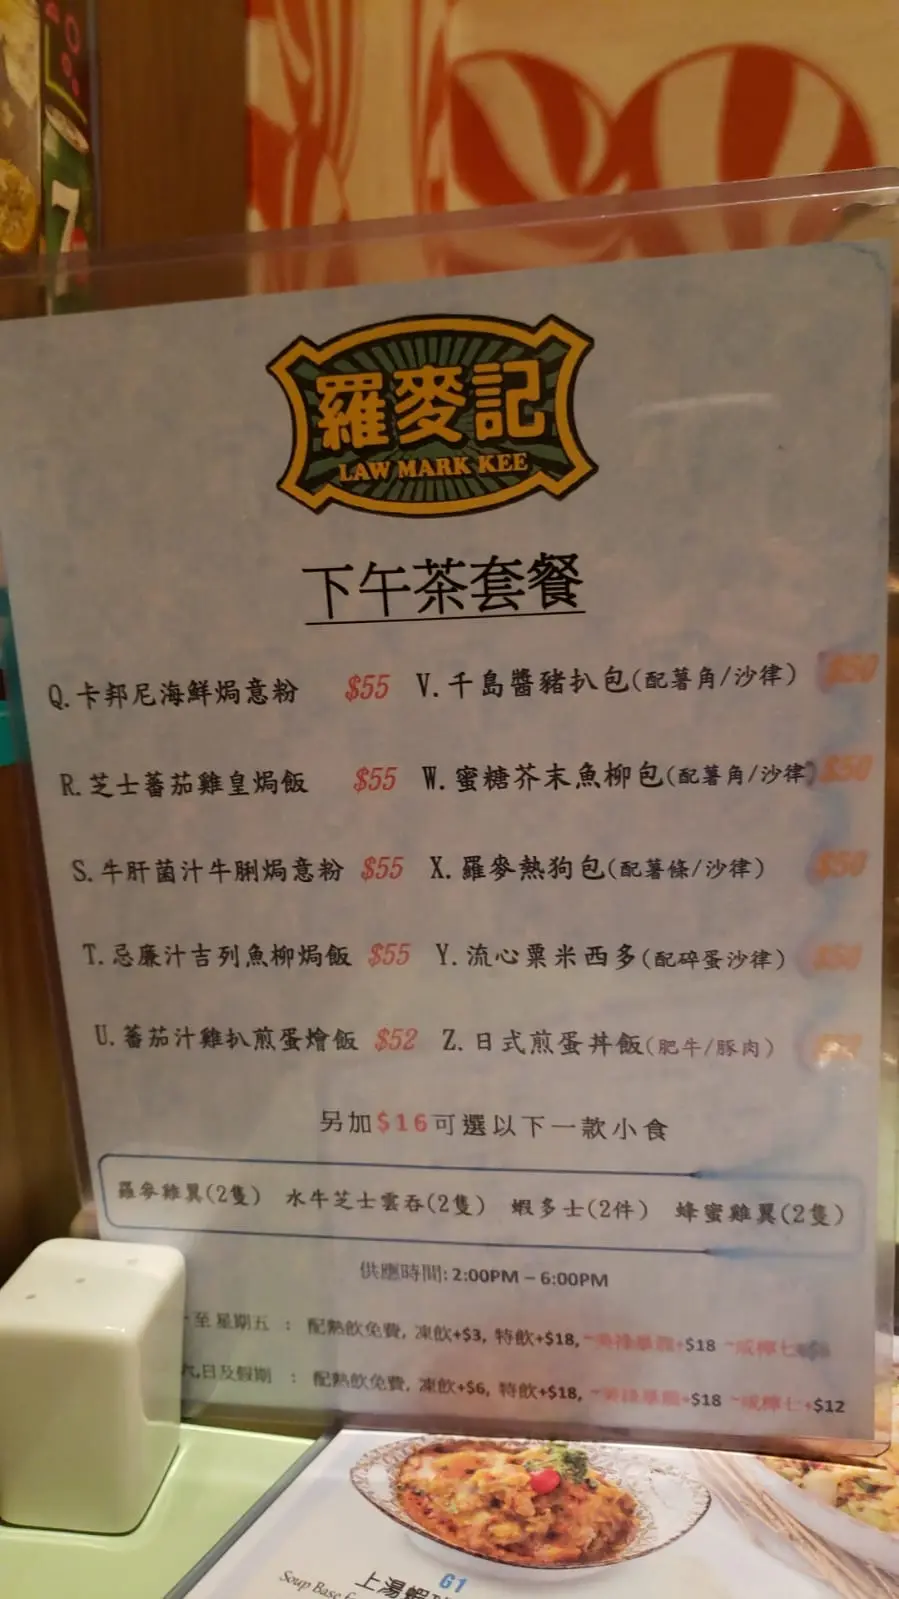 羅麥記
LAW MARK KEE
下午茶套餐
Q.卡邦尼海鮮焗意粉 $55
V.千島醬豬扒包(配薯角/沙律) $50
R.芝士蕃茄雞皇焗飯 $55
W.蜜糖芥末魚柳包(配薯角/沙律) $50
S.牛肝菌汁牛脷焗意粉 $55
X.羅麥熱狗包(配薯條/沙律) $50
T.忌廉汁吉列魚柳焗飯 $55
Y.流心粟米西多(配碎蛋沙律)
U.蕃茄汁雞扒煎蛋燴飯 $52
Z.日式煎蛋丼飯(肥牛/豚肉)
另加$16可選以下一款小食
羅麥雞翼(2隻) 水牛芝士雲吞(2隻) 蝦多士(2件) 蜂蜜雞翼(2隻)
供應時間:2:00PM – 6:00PM
至星期五 : 配熱飲免費, 凍飲+$3, 特飲+$18, +$18 咸檸七
六,日及假期 : 配熱飲免費, 凍飲+$6, 特飲+$18, +$18 咸檸七+$12
7
G1
上湯蝦
Soup Base